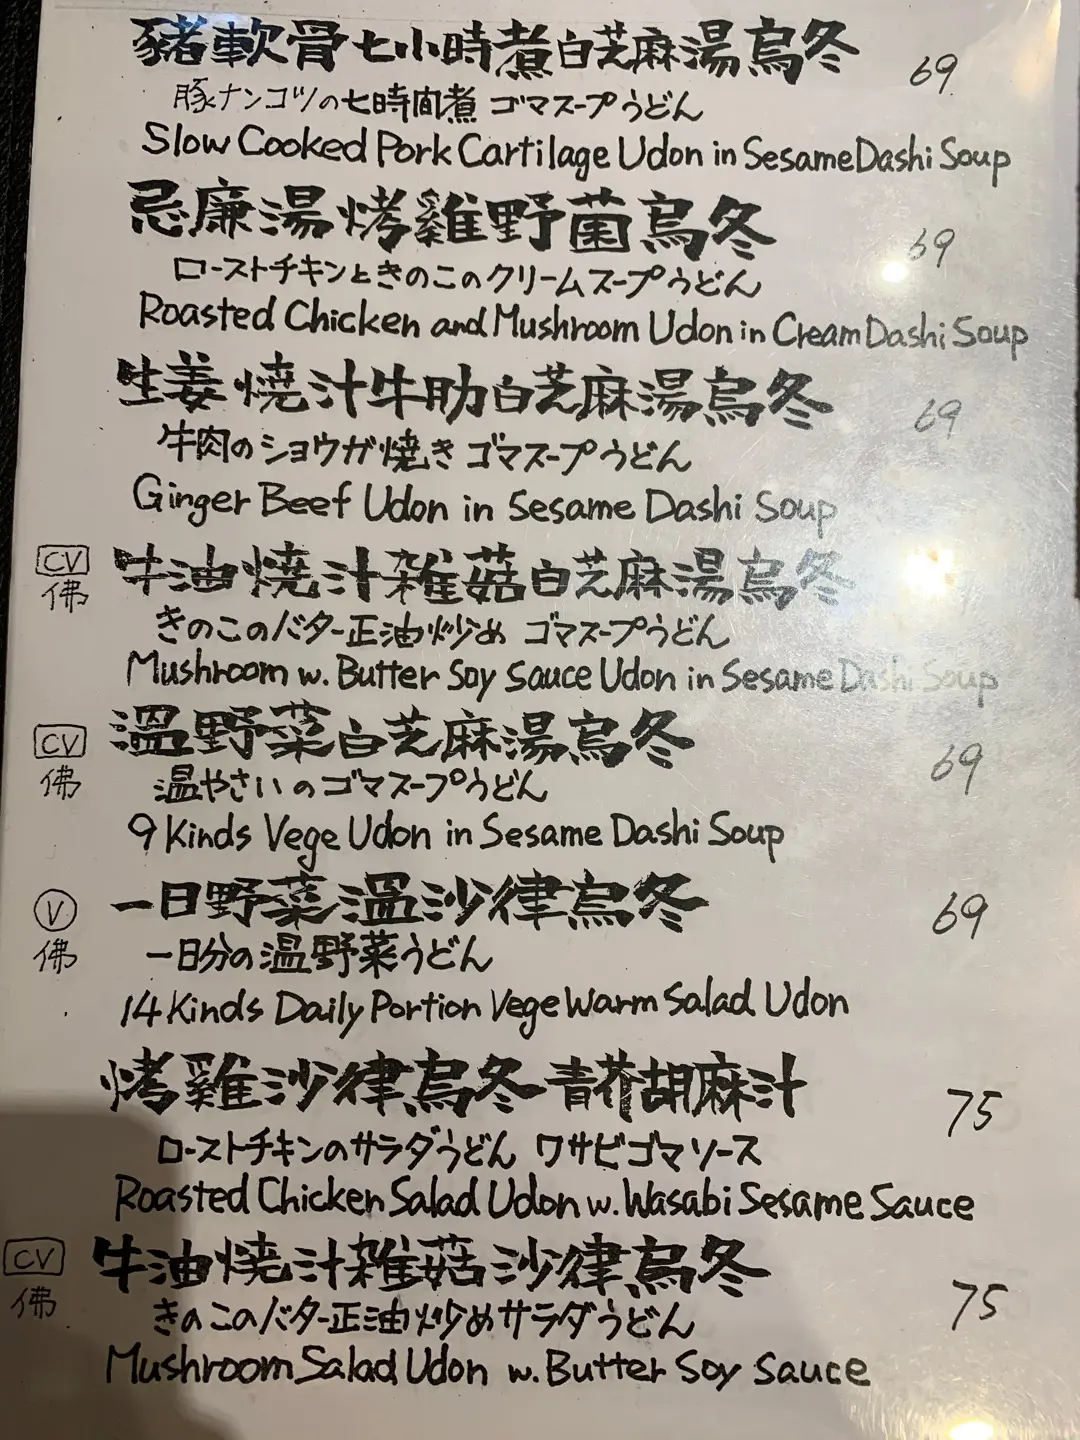 豬軟骨七小時煮白芝麻湯烏冬 69
豚ナンコツの七時間煮 ゴマスープうどん
Slow Cooked Pork Cartilage Udon in Sesame Dashi Soup
忌廉湯烤雞野菌烏冬 69
ローストチキンときのこのクリームスープうどん
Roasted Chicken and Mushroom Udon in Cream Dashi Soup
生姜燒汁牛肋白芝麻湯烏冬 69
牛肉のショウガ焼き ゴマスープうどん
Ginger Beef Udon in Sesame Dashi Soup
CV 牛油燒汁雑菇白芝麻湯烏冬
佛 きのこのバター正油炒め ゴマスープうどん
Mushroom w. Butter Soy Sauce Udon in Sesame Dashi Soup
CV 溫野菜白芝麻湯烏冬 69
佛 温やさいのゴマスープうどん
9 Kinds Vege Udon in Sesame Dashi Soup
V 一日野菜溫沙律烏冬 69
佛 一日分の温野菜うどん
14 Kinds Daily Portion Vege Warm Salad Udon
烤雞沙律烏冬 青芥胡麻汁 75
ローストチキンのサラダうどん ワサビゴマソース
Roasted Chicken Salad Udon w. Wasabi Sesame Sauce
CV 牛油燒汁雑菇沙律烏冬 75
佛 きのこのバター正油炒めサラダうどん
Mushroom Salad Udon w. Butter Soy Sauce